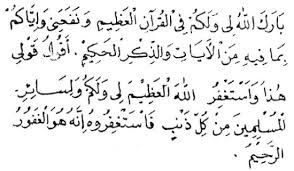 بَارَكَ اللهُ لِى وَلَكُمْ فِى الْقُرْآنِ الْعَظِيْمِ وَنَفَعَنِى وَإِيَّاكُمْ
بِمَا فِيْهِ مِنَ الْآيَاتِ وَالذِّكْرِ الْحَكِيْمِ. أَقُوْلُ قَوْلِى
هٰذَا وَاسْتَغْفِرُ اللهَ الْعَظِيْمَ لِى وَلَكُمْ وَلِسَائِرِ
الْمُسْلِمِيْنَ مِنْ كُلِّ ذَنْبٍ فَاسْتَغْفِرُوْهُ إِنَّهُ هُوَ الْغَفُوْرُ
الرَّحِيْمُ.